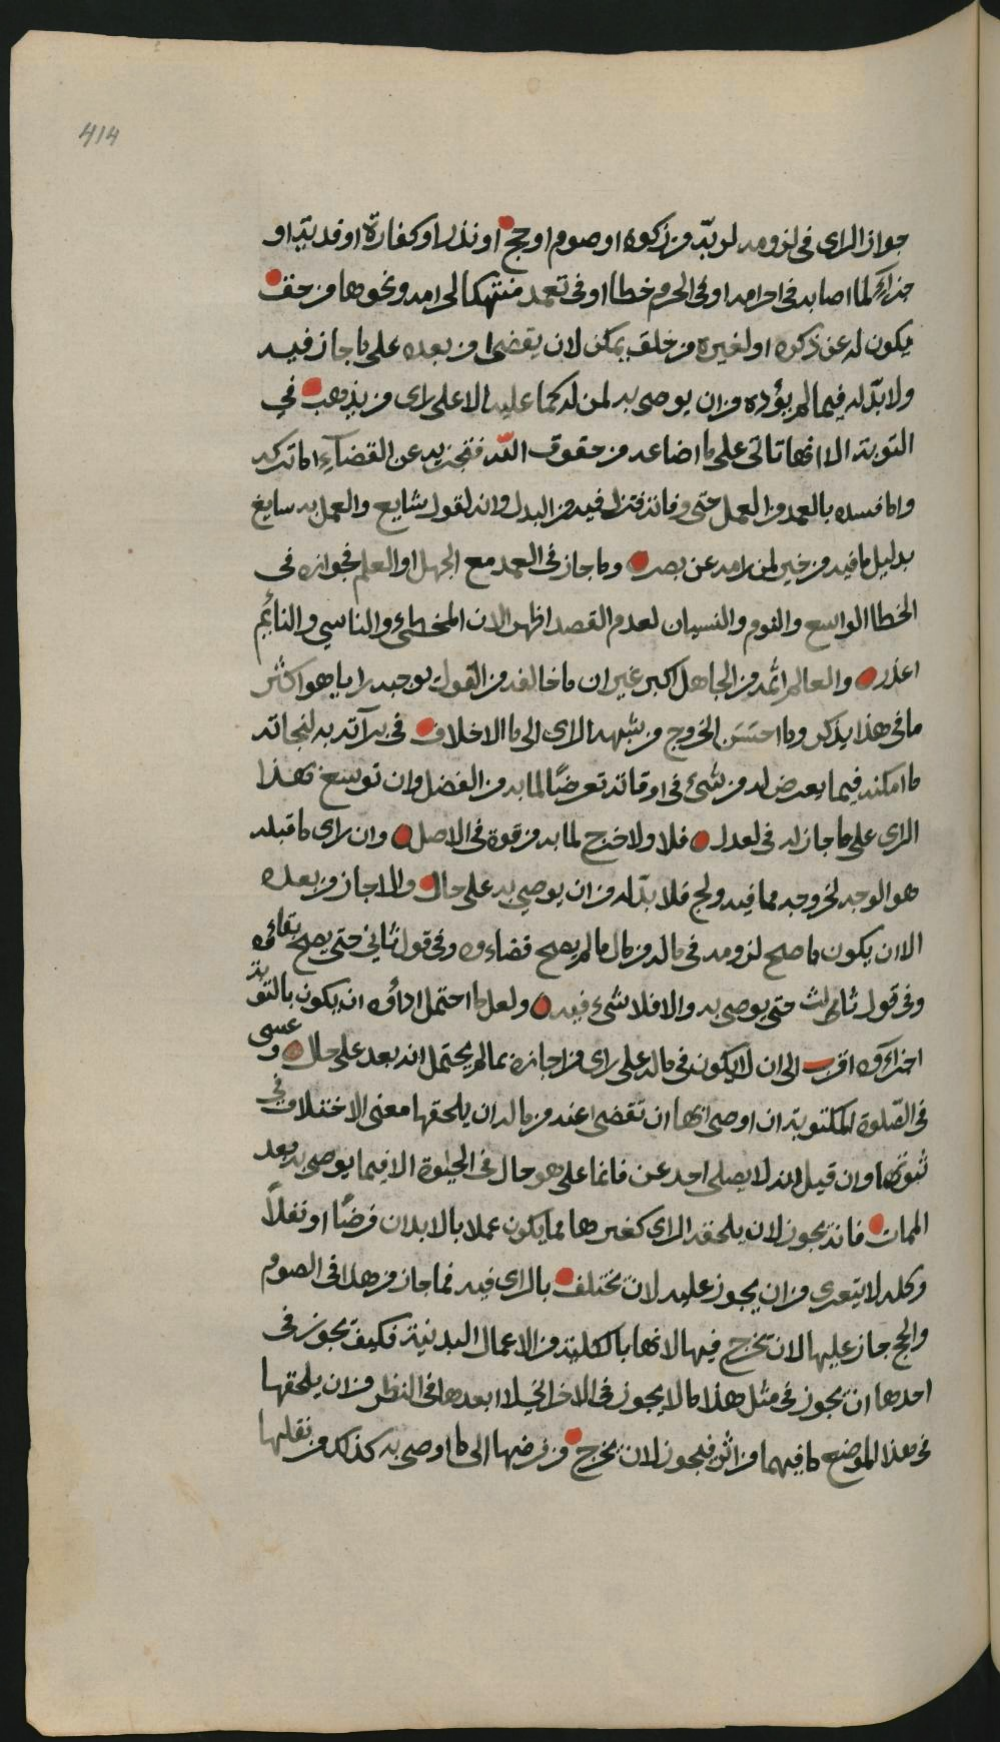 414
جواز الراى فى لزومه لربّه من زكوة او صوم او حج او نذر او كفارة او فدية او
جزاء لما اصابه فى احرامه او فى الحرم خطا او فى تعمد منتهكا لحرامه ونحوها من حق
يكون له عن ذكره او لغيره من خلقه يمكن لان يقضى من بعده على ما جاز فيه
ولا بدّ له فيما لم يؤده من ان يوصى به لمن له كما عليه الا على راى من يذهب في
التوبة الا انها تاتى على ما اضاعه من حقوق الله فتجزيه عن القضاء ما تركه
وما فسده بالعمد من العمل حتى وفاته فتنزل فيه من البدل وانه لقول شايع والعمل به سايغ
بدليل ما فيه من خير لمن رامه عن بصر وما جاز فى العمد مع الجهل او العلم فجوازه فى
الخطا الواسع والنوم والنسيان لعدم القصد اظهر لان المخطئ والناسي والنائم
اعذر والعالم اثمه من الجاهل اكبر غير ان ما خالفه من القول بوجبه رايا هو اكثر
ما فى هذا يذكر وما احسَنَ الخروج من شبهة الراى الى ما لا خلاف فى براته به لنجاته
ما امكنه فيما يعرض له من شئ فى اوقاته تعرضًا لما به من الفضل وان توسع بهذا
الراى على ما جاز له فى لعدل فلا ولا خرج لما به من قوة فى الاصل وان راى ما قبله
هو الوجه لخروجه مما فيه ولج فلا بدّ له من ان يوصي به على حال والا جاز من بعده
الا ان يكون ما صح لزومه فى ماله من مال ما لم يصح قضاءوه وفى قول ثاني حتى يصح بقائه
وفى قول ثالث حتى يوصى به والا فلا شىء فيه ولعل ما احتمل اداؤه ان يكون بالتوبة
اجزاءوه اقرب الى ان لا يكون فى ماله على راى من اجازه بما لم يحتمل انه بعد على حال وعسى
فى الصّلوة المكتوبة ان اوصى بها ان تقضى عنه من ماله ان يلحقها معنى الاختلاف فى
ثبوتها وان قيل انه لا يصلى احد عن فانما على هو حال فى الحيوة الا فيما يوصى به بعد
الممات فانه يجوز لان يلحقه الراى كغيرها مما يكون عملا بالابدان فرضًا او نفلًا
وكله لا يتعرى من ان يجوز عليه لان يختلف بالراى فيه فما جاز من هذا فى الصوم
والحج جاز عليها لان تخرج فيها لانها بالكلية من الاعمال البدنية فكيف يجوز فى
احدها ان يجوز فى مثل هذا ما لا يجوز فى الاخر ا بعدها فى النظر من ان يلحقها
فى هذا الموضع ما فيهما من اثر فيجوز لان تخرج من فرضها الى ما اوصى به كذلك من نقلها